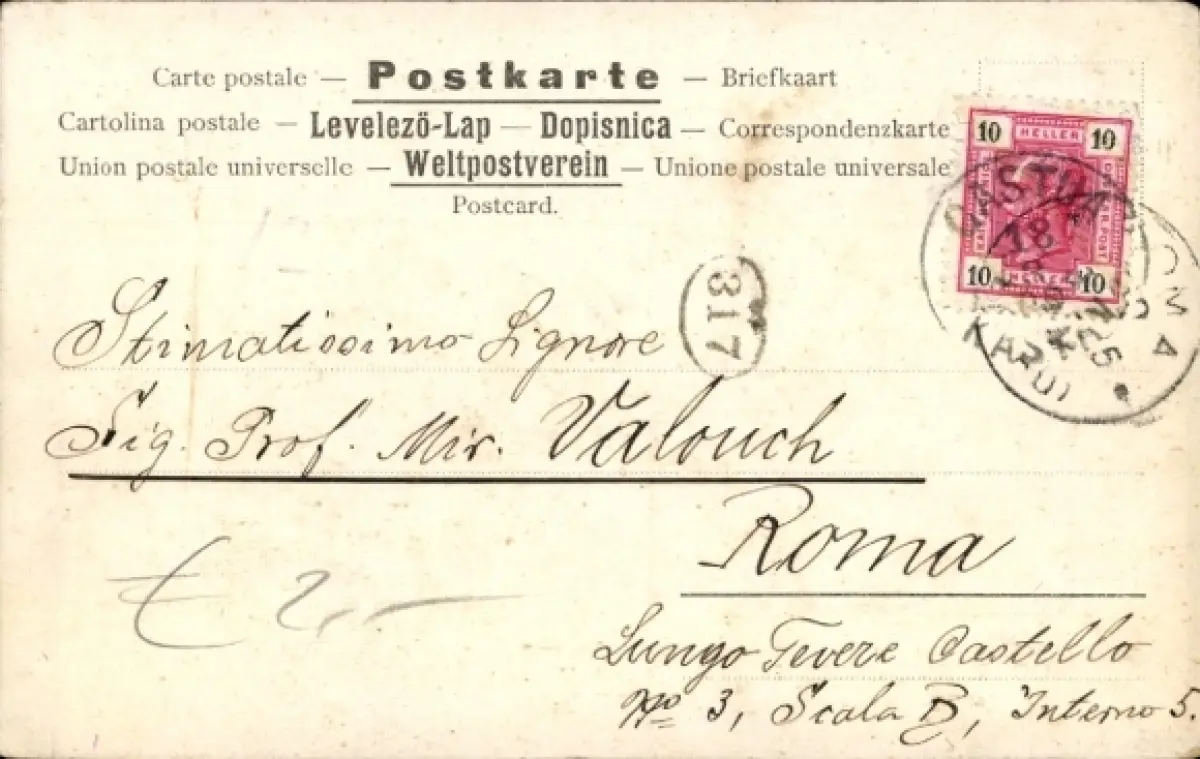 Carte postale — Postkarte — Briefkaart
Cartolina postale — Levelező-Lap — Dopisnica — Correspondenzkarte
Union postale universelle — Weltpostverein — Unione postale universale
Postcard.
10 HELLER 10
10 HELLER 10
18
317
Stimatissimo Signore
Sig. Prof. Mir. Valouch
Roma
€ 2,—
Lungo Tevere Castello
No 3, Scala B, Interno 5.